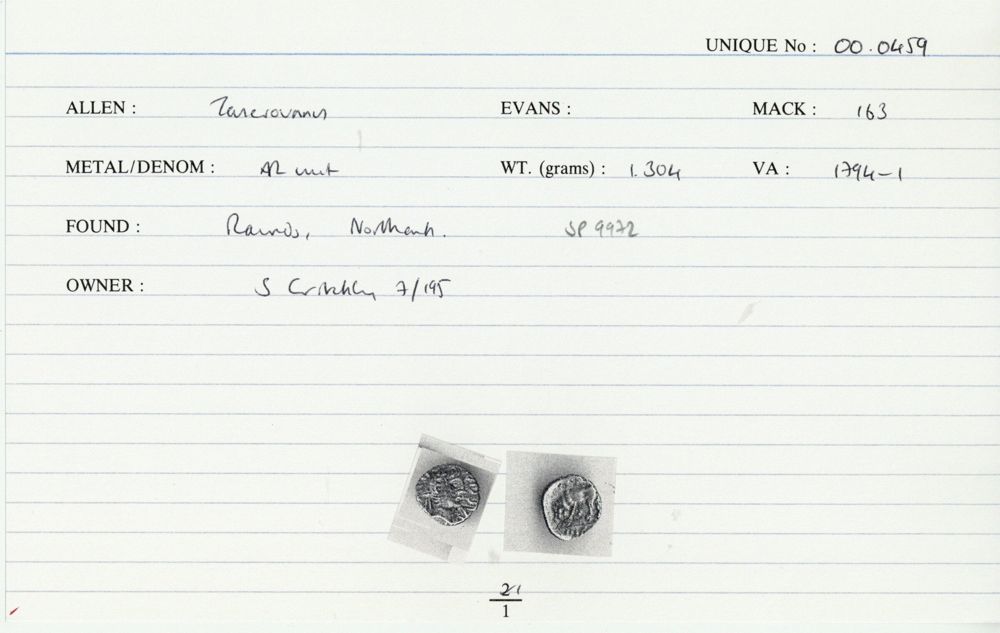 UNIQUE No : 00.0459
ALLEN : Tasciovanus EVANS : MACK : 163
METAL/DENOM : AR unit WT. (grams) : 1.304 VA : 1794-1
FOUND : Raunds, Northants. SP 9972
OWNER : S Critchley 7/195
21
1